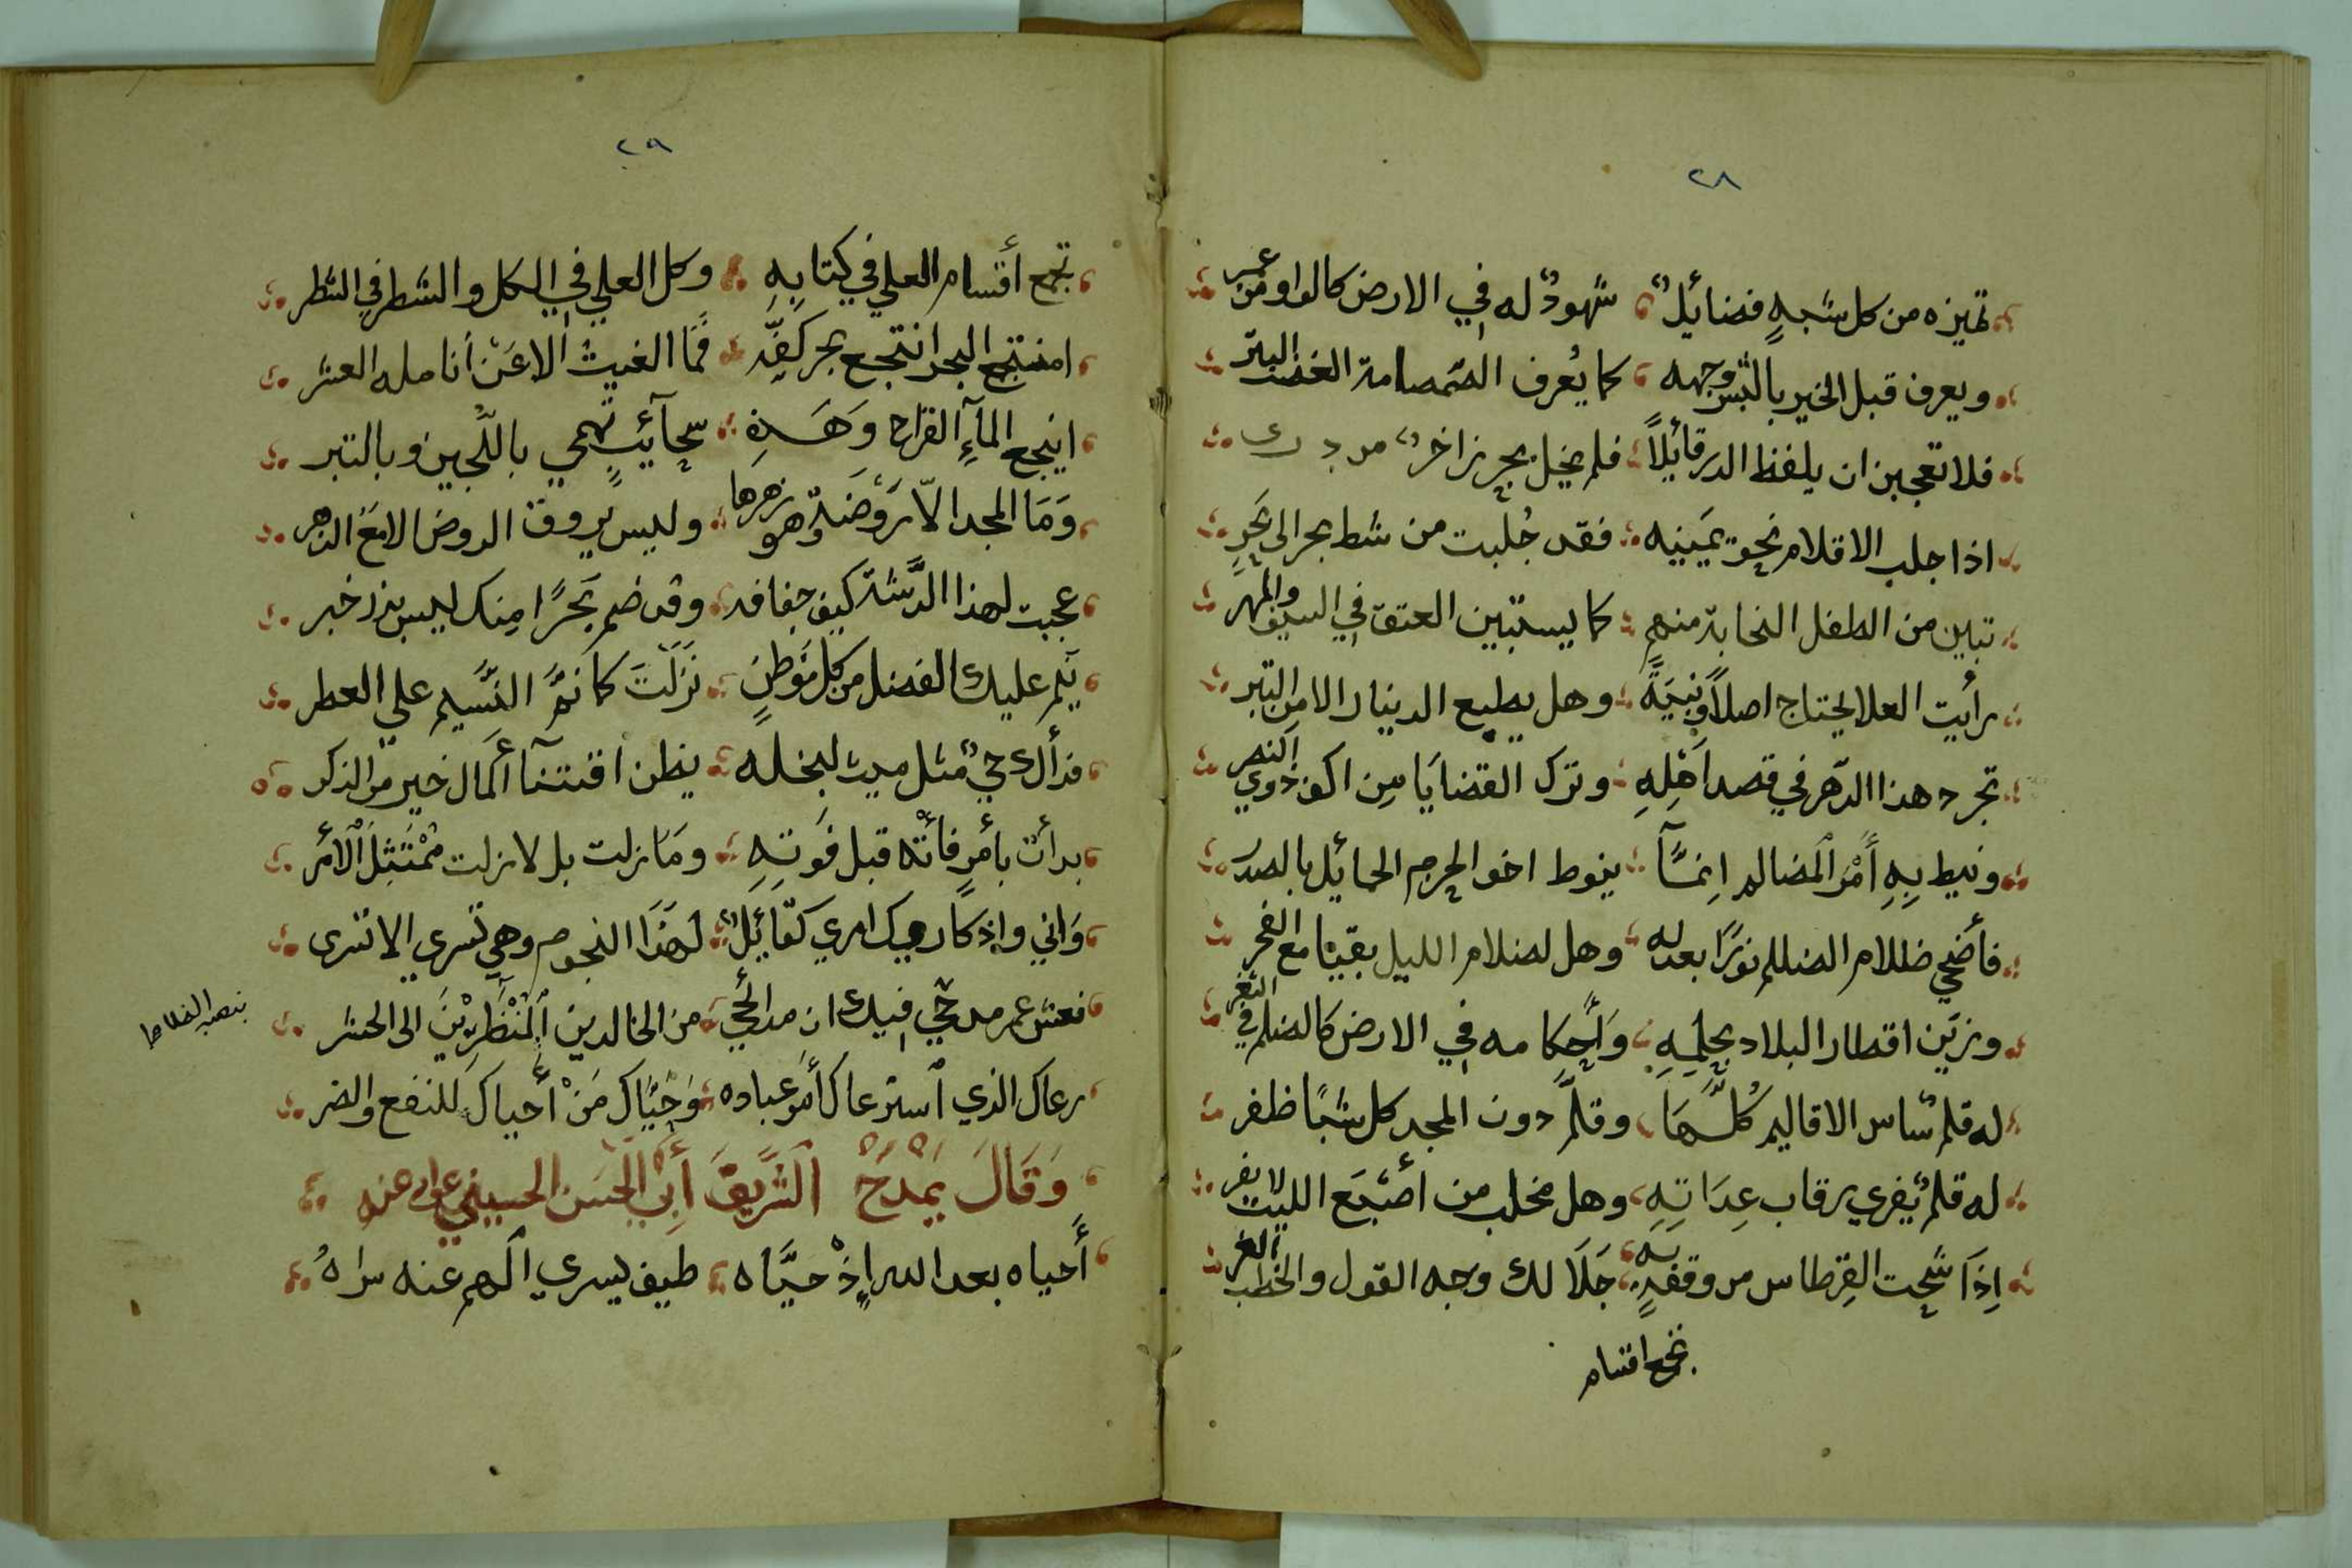 ٢٨
تميزه من كل شبهٍ فضائلٌ شهودٌ له في الارض كالواو من عمر
ويعرف قبل الخير بالبشر وجهه كما يُعرف الصمصامة العضب البتر
فلا تعجبن ان يلفظ الدر قائلاً فلم يخل بحر زاخرٌ من درر
اذا جلب الاقلام نحو يمينه فقد جُلبت من شط بحر الى بحرِ
تبين من الطفل النجابة منهم كما يستبين العتق في السيف والمهر
رأيت العلا يحتاج اصلاً ونبيةً وهل يطبع الدينار الا من التبر
تجرد هذا الدهر في قصد اهلِهِ وترك القضايا من اكف ذوي النصر
ونيط بِهِ أمر المضالم اِنمآ ينوط اخو الحرم الحمائل بالصدر
فأضحى ظلام الضلم نورًا بعدله وهل لضلام الليل بقيا مع الفجر
وزين اقطار البلاد بحلمِهِ وأحكامه في الارض كالضلم في الثغر
له قلم ساس الاقاليم كُلّها وقلّ دون المجد كل شبًا ظفر
له قلمٌ يُفري رقاب عِدَاتِهِ وهل مخلب من أصبع الليث لا يفر
اِذَا شحت القِرطاس من وقفةٍ به جَلَا لك وجه القول والخطب الغر
تجمع اقسام
٢٩
تجمع أقسام العلى في كتابِهِ وكل العلى في الكل والشطر في الشطر
امنتجع البحر انتجع بحر كفّه فمَا الغيث الا عَنْ أنامله العشر
اينجع المآءِ القراح وَهَذِهِ سحآئبٍ تهمي باللجين وبالتبر
وَمَا المجد الّا رَوْضَةٌ وهو زهرها وليس يروق الروض الا مَعَ الزهر
عجبت لهذا الدَّشت كيف جفافه وقد ضم بَحرًا مِنك ليس بذذخبر
يَنُم عليك الفضل من كل مَوْطنٍ نَزلْتَ كما نَمَّ النَّسيم على العطر
فدأك حيٌّ مثل ميت لبخله يظن اقتنآ المال خير من الذكر
بدأت بأمرٍ فأته قبل فَوتِهِ ومَا زلت بل لا زلت مُمْتَثِلَ الأَمْر
وَاني واذكاريك امري كقَائِلٌ لهَذَا النجوم وهي تسري الا تسرى
فعش عمر مدحي فيك ان مدائحي من الخالدين المُنْظَرِيْنَ الى الحشر
رعاك الذي استرعاك أمر عباده وَحَيّاك مَنْ أحياك للنفع والضر
وَقَالَ يَمْدَحُ الشَّرِيْفَ أَبِي الحَسَن الحسيني عفى عنه
أَحياه بعد الله إِذْ حيَّاه طيف يسري الهم عنه سراهُ